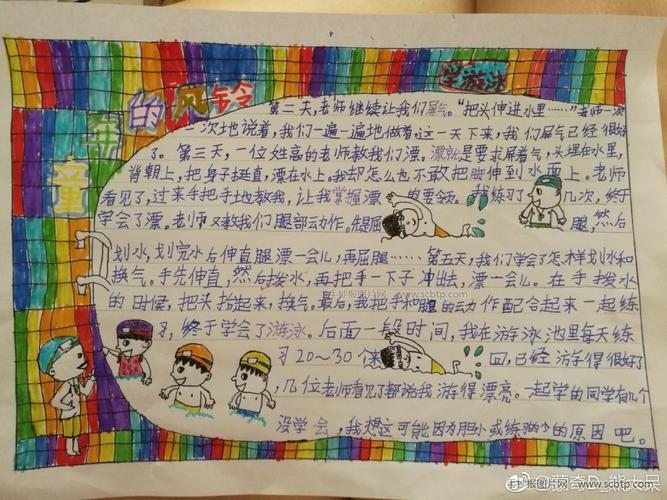 学游泳
童年的风铃
第二天，老师继续让我们屏气。“把头伸进水里……”老师一次
一次地说着，我们一遍一遍地做着这一天下来，我们屏气已经很好
了。第三天，一位姓高的老师教我们漂，漂就是要求屏着气，头埋在水里，
背朝上，把身子挺直，漂在水上。我却怎么也不敢把脚伸到水面上。老师
看见了，过来手把手地教我，让我掌握漂的要领。我练习了几次，终于
学会了漂。老师又教我们腿部动作。先屈腿，然后
划水，划完水后伸直腿漂一会儿，再屈腿……第五天，我们学会了怎样划水和
换气。手先伸直，然后拨水，再把手一下子冲出去，漂一会儿。在手拨水
的时候，把头抬起来，换气。最后，我把手和腿的动作配合起来一起练
习，终于学会了游泳。后面一段时间，我在游泳池里每天练
习20～30个来回，已经游得很好了
，几位老师看见了都说我游得漂亮。一起学的同学有几个
没学会，我想这可能因为胆小或练的少的原因吧。
手抄报图片网 www.scbtp.com
手抄报图片网 www.scbtp.com